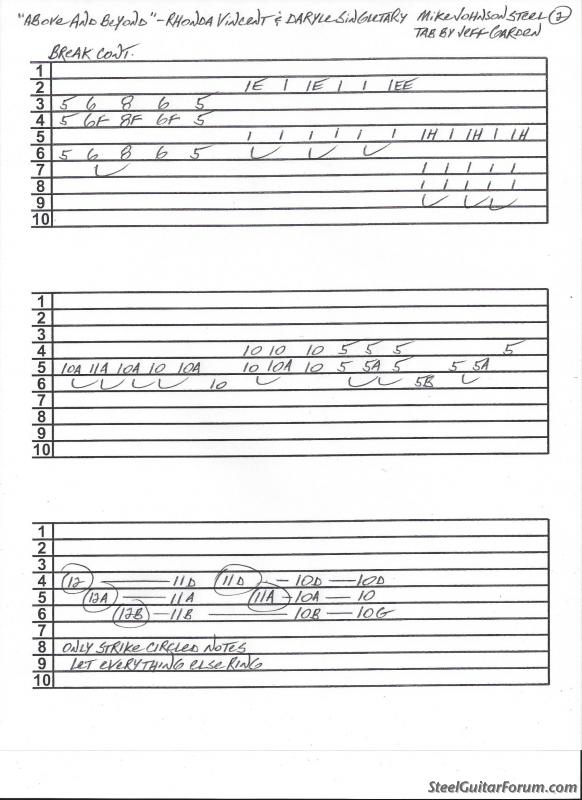 "Above And Beyond" - Rhonda Vincent & Daryle Singletary Mike Johnson Steel 2
Tab by Jeff Garden
Break Cont.
1
2 1E 1 1E 1 1 1EE
3 5 6 8 6 5
4 5 6F 8F 6F 5
5 1 1 1 1 1 1 1H 1 1H 1 1H
6 5 6 8 6 5
7 1 1 1 1 1
8 1 1 1 1 1
9
10
1
2
3
4 10 10 10 5 5 5 5
5 10A 11A 10A 10 10A 10 10A 10 5 5A 5 5 5A
6 10 5B
7
8
9
10
1
2
3
4 12 — 11D 11D — 10D — 10D
5 12A — 11A 11A — 10A — 10
6 12B — 11B — 10B — 10G
7
8 Only strike circled notes
9 Let everything else ring
10
SteelGuitarForum.com